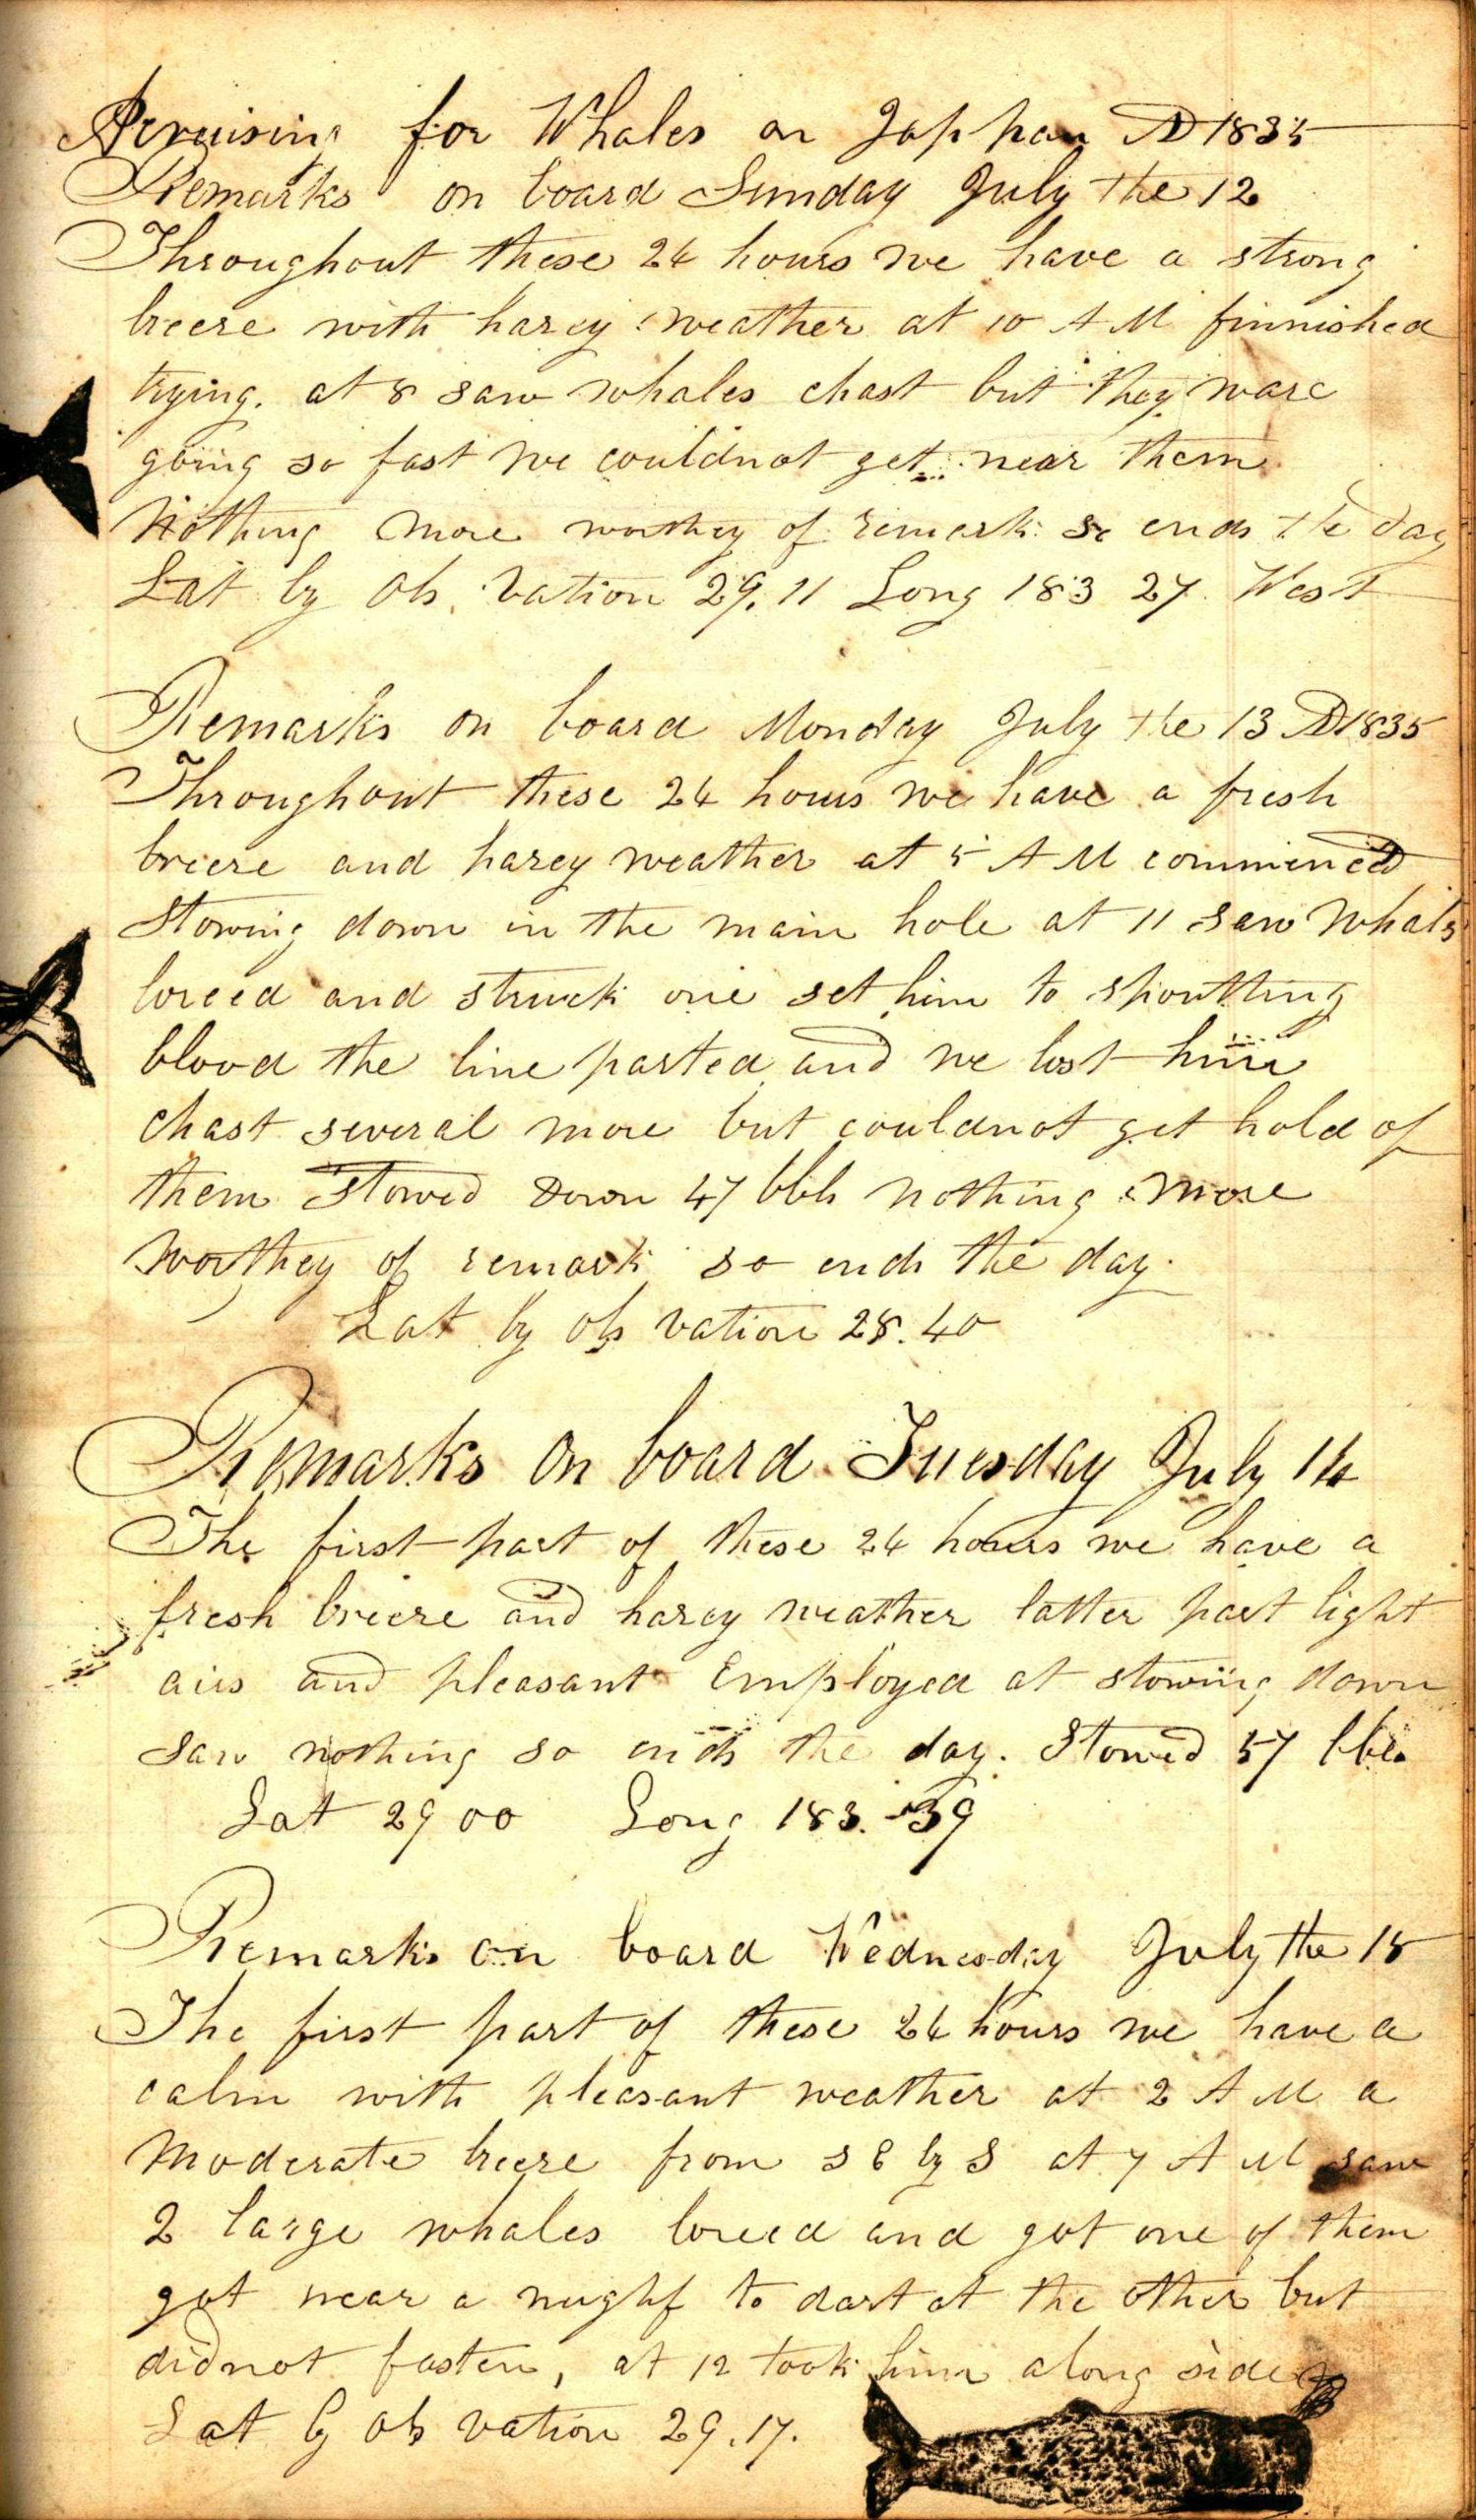 Acruising for Whales on Jappan AD 1835
Remarks on board Sunday July the 12
Throughout these 24 hours we have a strong
breeze with hazey weather at 10 AM finnished
trying. at 8 saw whales chast but they ware
going so fast we couldnot get near them
Nothing more worthy of remark so ends the day
Lat by Obs vation 29.11 Long 183 27 West
Remarks on board Monday July the 13 AD 1835
Throughout these 24 hours we have a fresh
breeze and hazey weather at 5 AM commenced
stowing down in the main hole at 11 saw Whals
lored and struck one set him to spoutting
blood the line parted and we lost him
chast several more but couldnot get hold of
them stowed down 47 bbls nothing more
worthey of remark so ends the day.
Lat by obs vation 28.40
Remarks on board Tuesday July 14
The first part of these 24 hours we have a
fresh breeze and hazey weather latter part light
airs and pleasant Employed at stowing down
saw nothing so ends the day. Stowed 57 bbls
Lat 29 00 Long 183.39
Remarks on board Wednesday July the 15
The first part of these 24 hours we have a
calm with pleasant weather at 2 AM a
moderate breeze from S E by S at 7 AM saw
2 large whales lored and got one of them
got near a nughf to dart at the other but
didnot fasten, at 12 took him along side
Lat by obs vation 29.17.